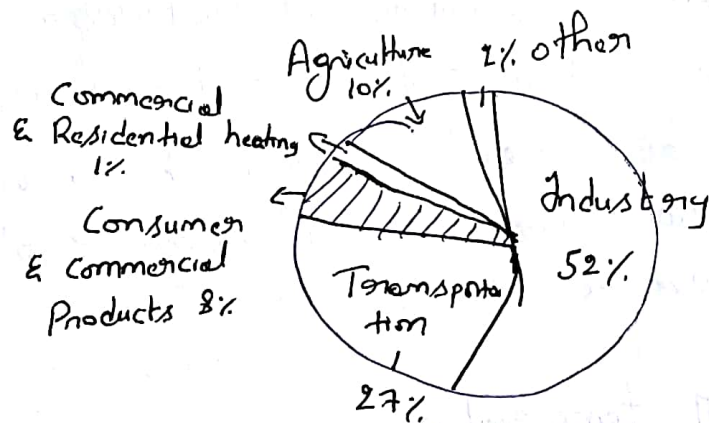 Agriculture
10%
1% other
Commercial
& Residential heating
1%
Consumer
& commercial
Products 8%
Industry
52%
Transporta
tion
27%